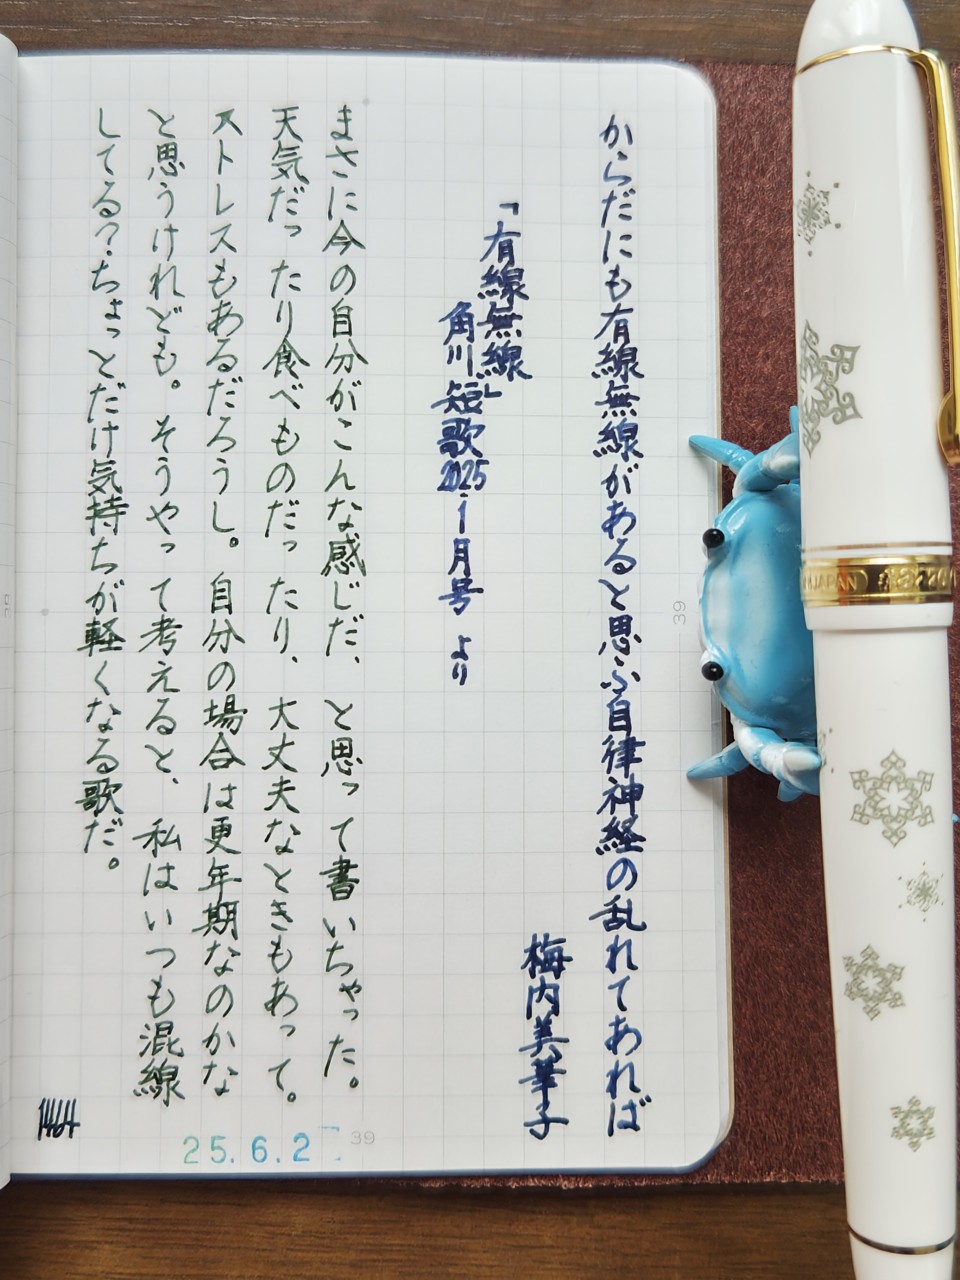 からだにも有線無線があると思ふ自律神経の乱れてあれば
梅内美華子
「有線無線」
角川短歌2025.1月号 より
まさに今の自分がこんな感じだ、と思って書いちゃった。
天気だったり食べものだったり、大丈夫なときもあって。
ストレスもあるだろうし。自分の場合は更年期なのかな
と思うけれども。そうやって考えると、私はいつも混線
してる?ちょっとだけ気持ちが軽くなる歌だ。
1464
25.6.2
39
39
JAPAN